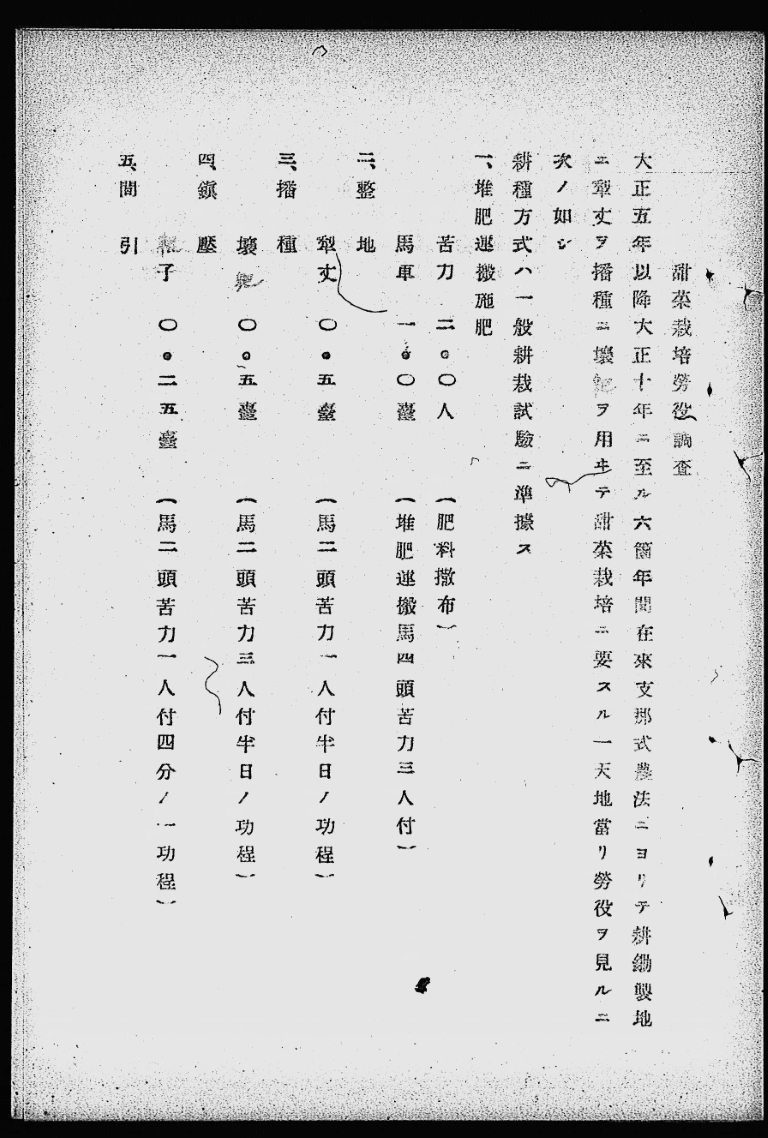 甜菜栽培勞役調査
大正五年以降大正十年ニ至ル六箇年間在來支那式農法ニヨリテ耕鋤製地
ニ犂丈ヲ播種ニ壤耙ヲ用ヰテ甜菜栽培ニ要スル一天地當リ勞役ヲ見ルニ
次ノ如シ
耕種方式ハ一般耕栽試驗ニ準據ス
一、堆肥運搬施肥
苦力 二。〇人 (肥料撒布)
馬車 一。〇臺 (堆肥運搬馬四頭苦力三人付)
二、整地
犂丈 〇。五臺 (馬二頭苦力一人付半日ノ功程)
三、播種
壤 〇。五臺 (馬二頭苦力三人付半日ノ功程)
四、鎭壓
子 〇。二五臺 (馬二頭苦力一人付四分ノ一功程)
五、間引